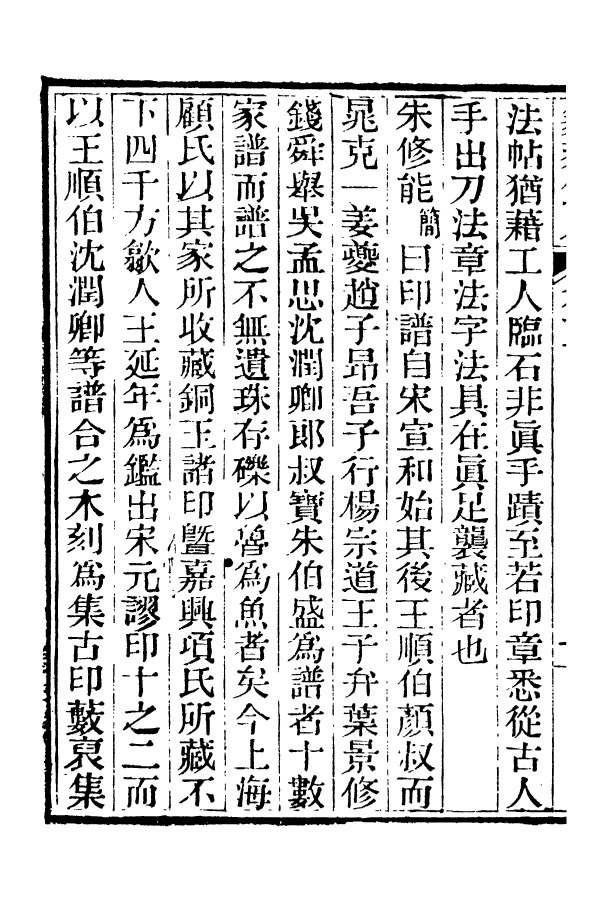 法帖猶藉工人臨石非眞手蹟至若印章悉從古人
手出刀法章法字法具在眞足襲藏者也
朱修能簡曰印譜自宋宣和始其後王順伯顏叔而
晁克一姜夔趙子昻吾子行楊宗道王子弁葉景修
錢舜舉吳孟思沈潤卿郎叔寶朱伯盛爲譜者十數
家譜而譜之不無遺珠存礫以魯爲魚者矣今上海
顧氏以其家所收藏銅玉諸印曁嘉興項氏所藏不
下四千方歙人王延年爲鑑出宋元謬印十之二而
以王順伯沈潤卿等譜合之木刻爲集古印藪裒集